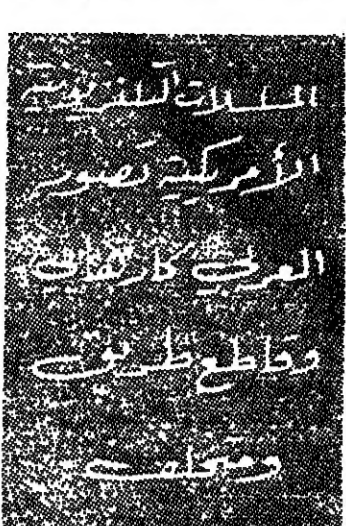 المسلسلات التلفزيونية
الأمريكية تصور
العربي كارهابي
وقاطع طريق
ومتخلف